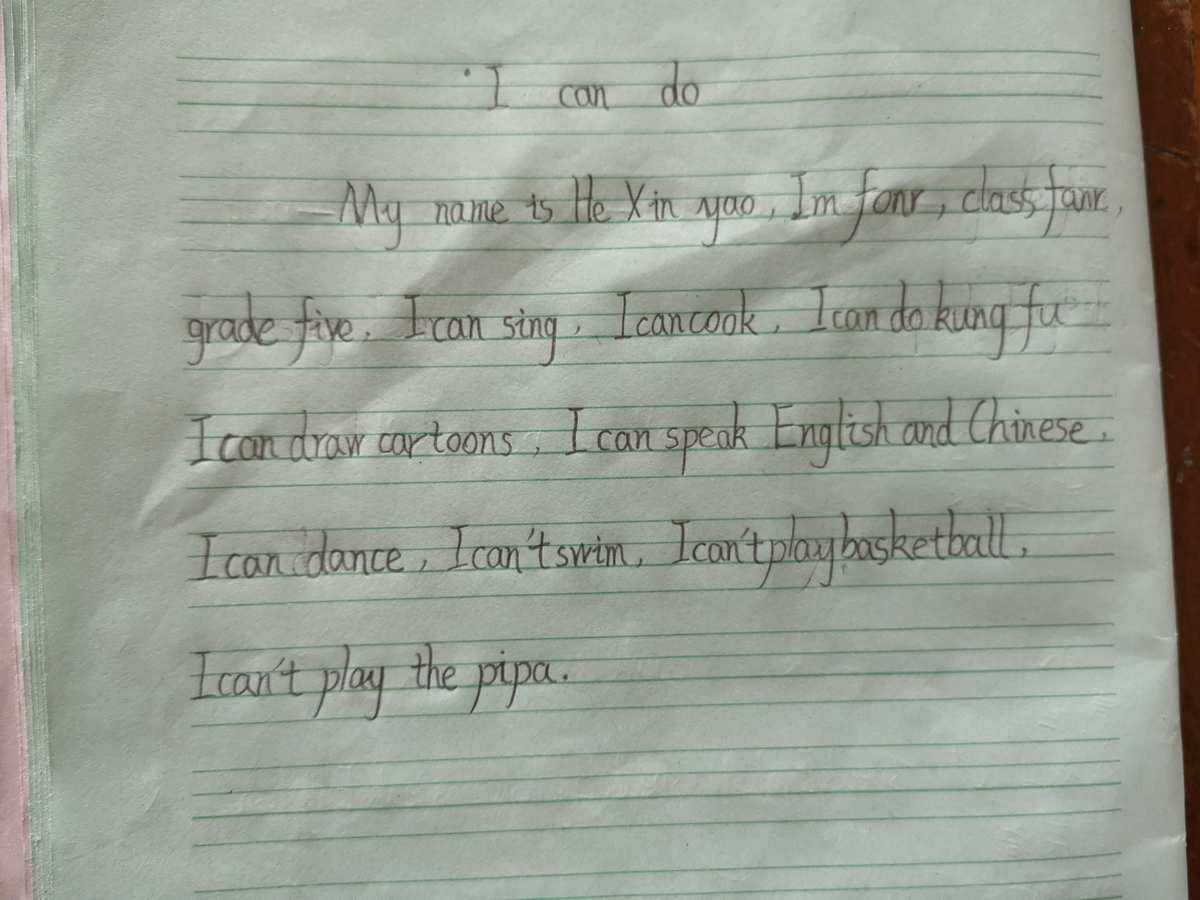 I can do
My name is He Xin yao, Im fonr, class, fanr,
grade five. I can sing, I can cook, I can do kung fu
I can draw cartoons, I can speak English and Chinese,
I can dance, I can't swim, I can't play basketball,
I can't play the pipa.